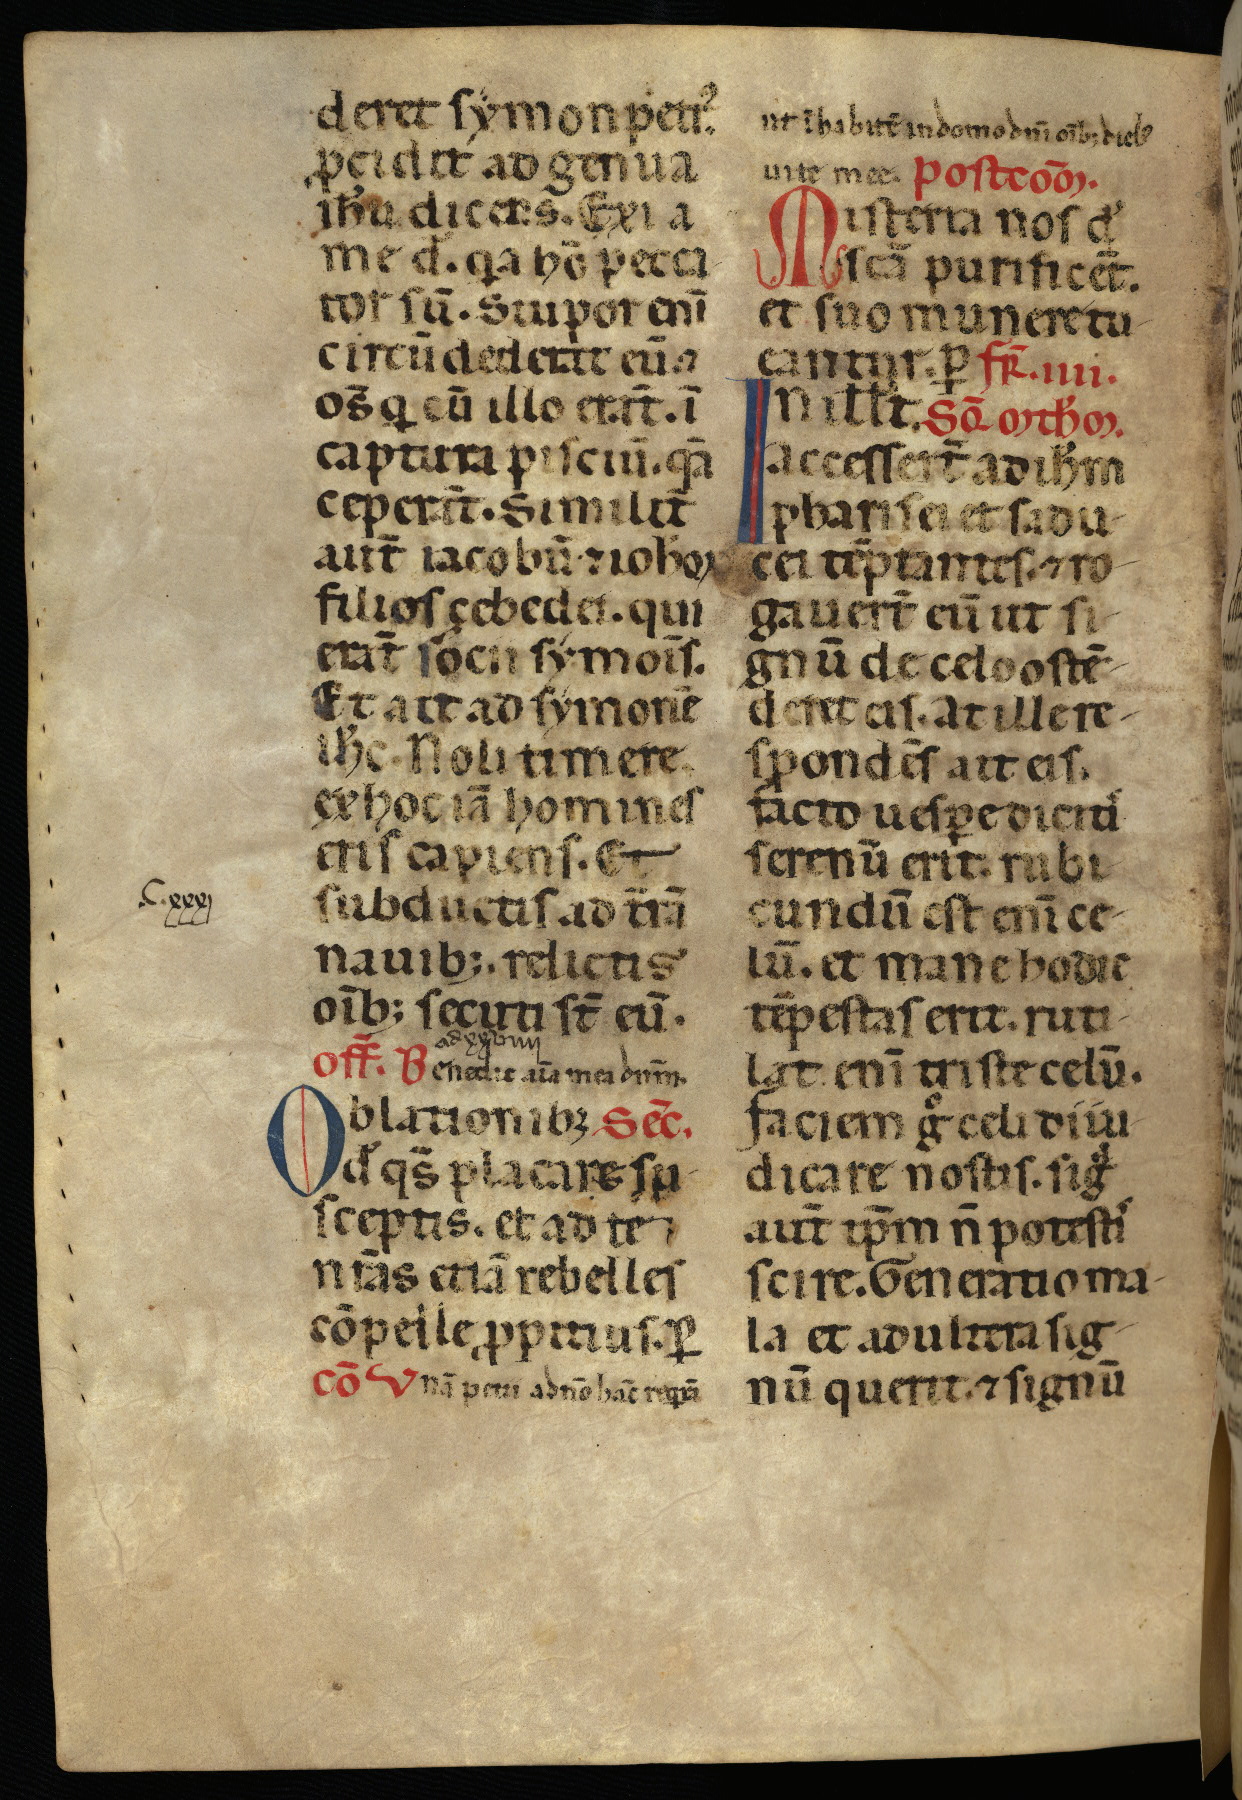 deret symon petr᾽.
ꝓcidit ad genua
ih̄u dicens. Exi a
me d̄. q̇a hō pecca-
tor sū. Stupor enī
circūdederat eū ⁊
oēs q̄ cū illo erāt. ī
captura pisciū. quā
ceperāt. Similit̄
aut̄ iacobū ⁊ ioh̄ē
filios çebedei. qui
erāt socii symoīs.
Et ait ad symonē
ih̄c. Noli timere.
ex hoc iā homines
eris capiens. Et
subductis ad t̄rā
nauib;. relictis
oīb; secuti st̄ eū.
ad xxviiii
off̄. Benedic aīa mea dnm̄.
Oblationib; Sec̄.
d᾽ qs̄ placare su-
sceptis. et ad te
nr̄as etiā rebelles
cōpelle ꝓpitius. ꝑ
cō Vnā petii a dnō hāc reqrā
C.xxxi
ut īhabitē in domo dnī oīb; dieb᾽
uite mee. postcōō.
Misteria nos d᾽
scā purificēt.
et suo munere tu-
eantur. ꝑ fr̄. iiii.
In ill̄ t. Sc̄d mth̄m.
accessert̄ ad ih̄m
pharisei et sadu-
cei tēptantes. ⁊ ro-
gauert̄ eū ut si-
gnū de celo ostē-
deret eis. At ille re-
spondēs ait eis.
facto uesꝑe dicitis
serenū erit. rubi-
cundū est enī ce-
lū. et mane hodie
tēpestas erit. ruti-
lat enī triste celū.
faciem g° celi diiu-
dicare nostis. sigͣ
aut̄ ip̄m n̄ potestis
scire. Generatio ma-
la et adultera sig-
nū querit. ⁊ signū